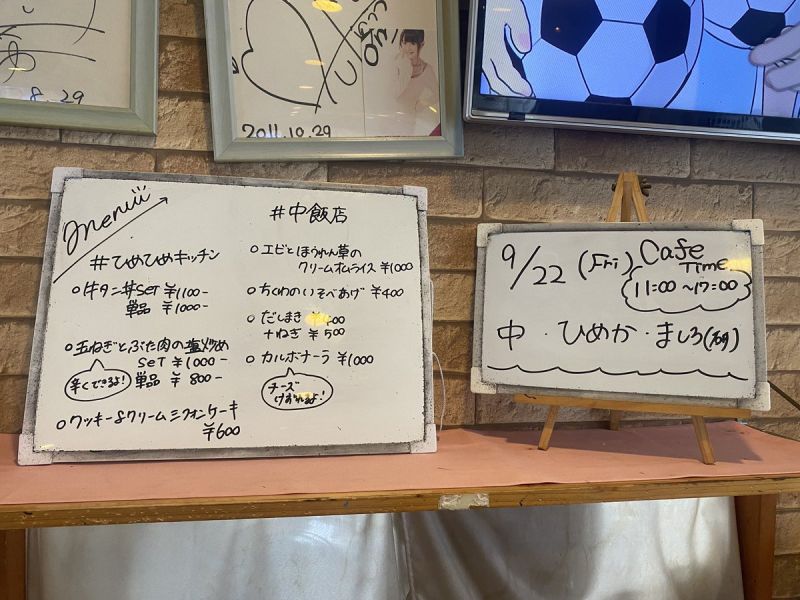 8.29
2011.10.29
menu
#ひめひめキッチン
牛タン丼SET ¥1100-
単品 ¥1000-
玉ねぎとぶた肉の塩炒め
SET ¥1000-
辛くできるよ! 単品 ¥800-
クッキー&クリームシフォンケーキ
¥600
#中飯店
エビとほうれん草の
クリームオムライス ¥1000
ちくわのいそべあげ ¥400
だしまき ¥400
+ねぎ ¥500
カルボナーラ ¥1000
チーズ
けずれるよ!
9/22 (Fri) Cafe
Time
11:00~17:00
中・ひめか・ましろ